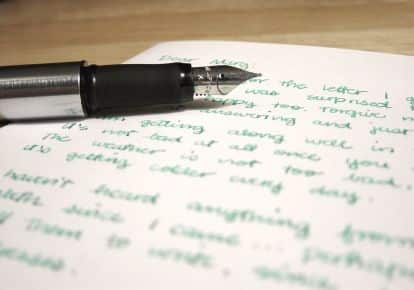 Dear Mary,
for the letter I g
was surprised
happy too. Forgive m
answering and just
I'm getting along well in
it's not bad at all once you
The weather is not too bad
it's getting colder every day.
haven't heard anything from
since I came... perhaps
them to write, since